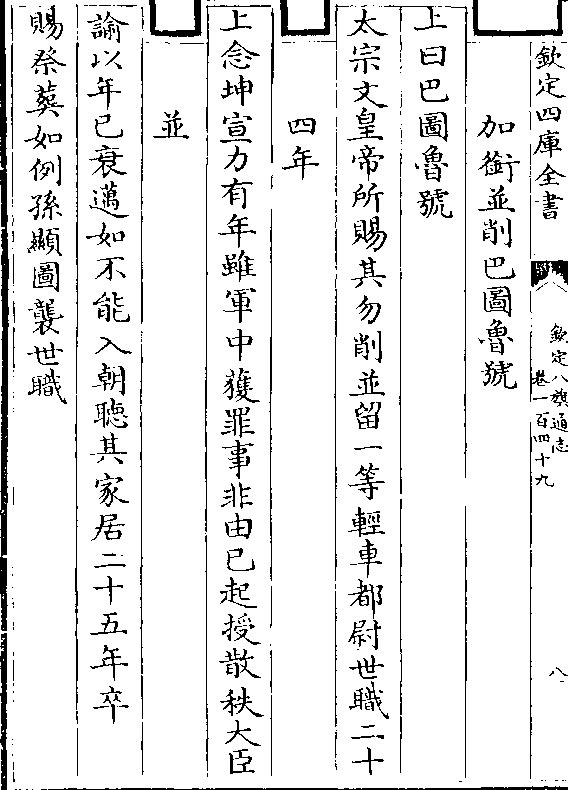 欽定四庫全書
欽定八旗通志
卷一百四十九
八
加銜並削巴圖魯號
上曰巴圖魯號
太宗文皇帝所賜其勿削並留一等輕車都尉世職二十
四年
上念坤宣力有年雖軍中獲罪事非由已起授散秩大臣
並
諭以年已衰邁如不能入朝聽其家居二十五年卒
賜祭葬如例孫顯圖襲世職